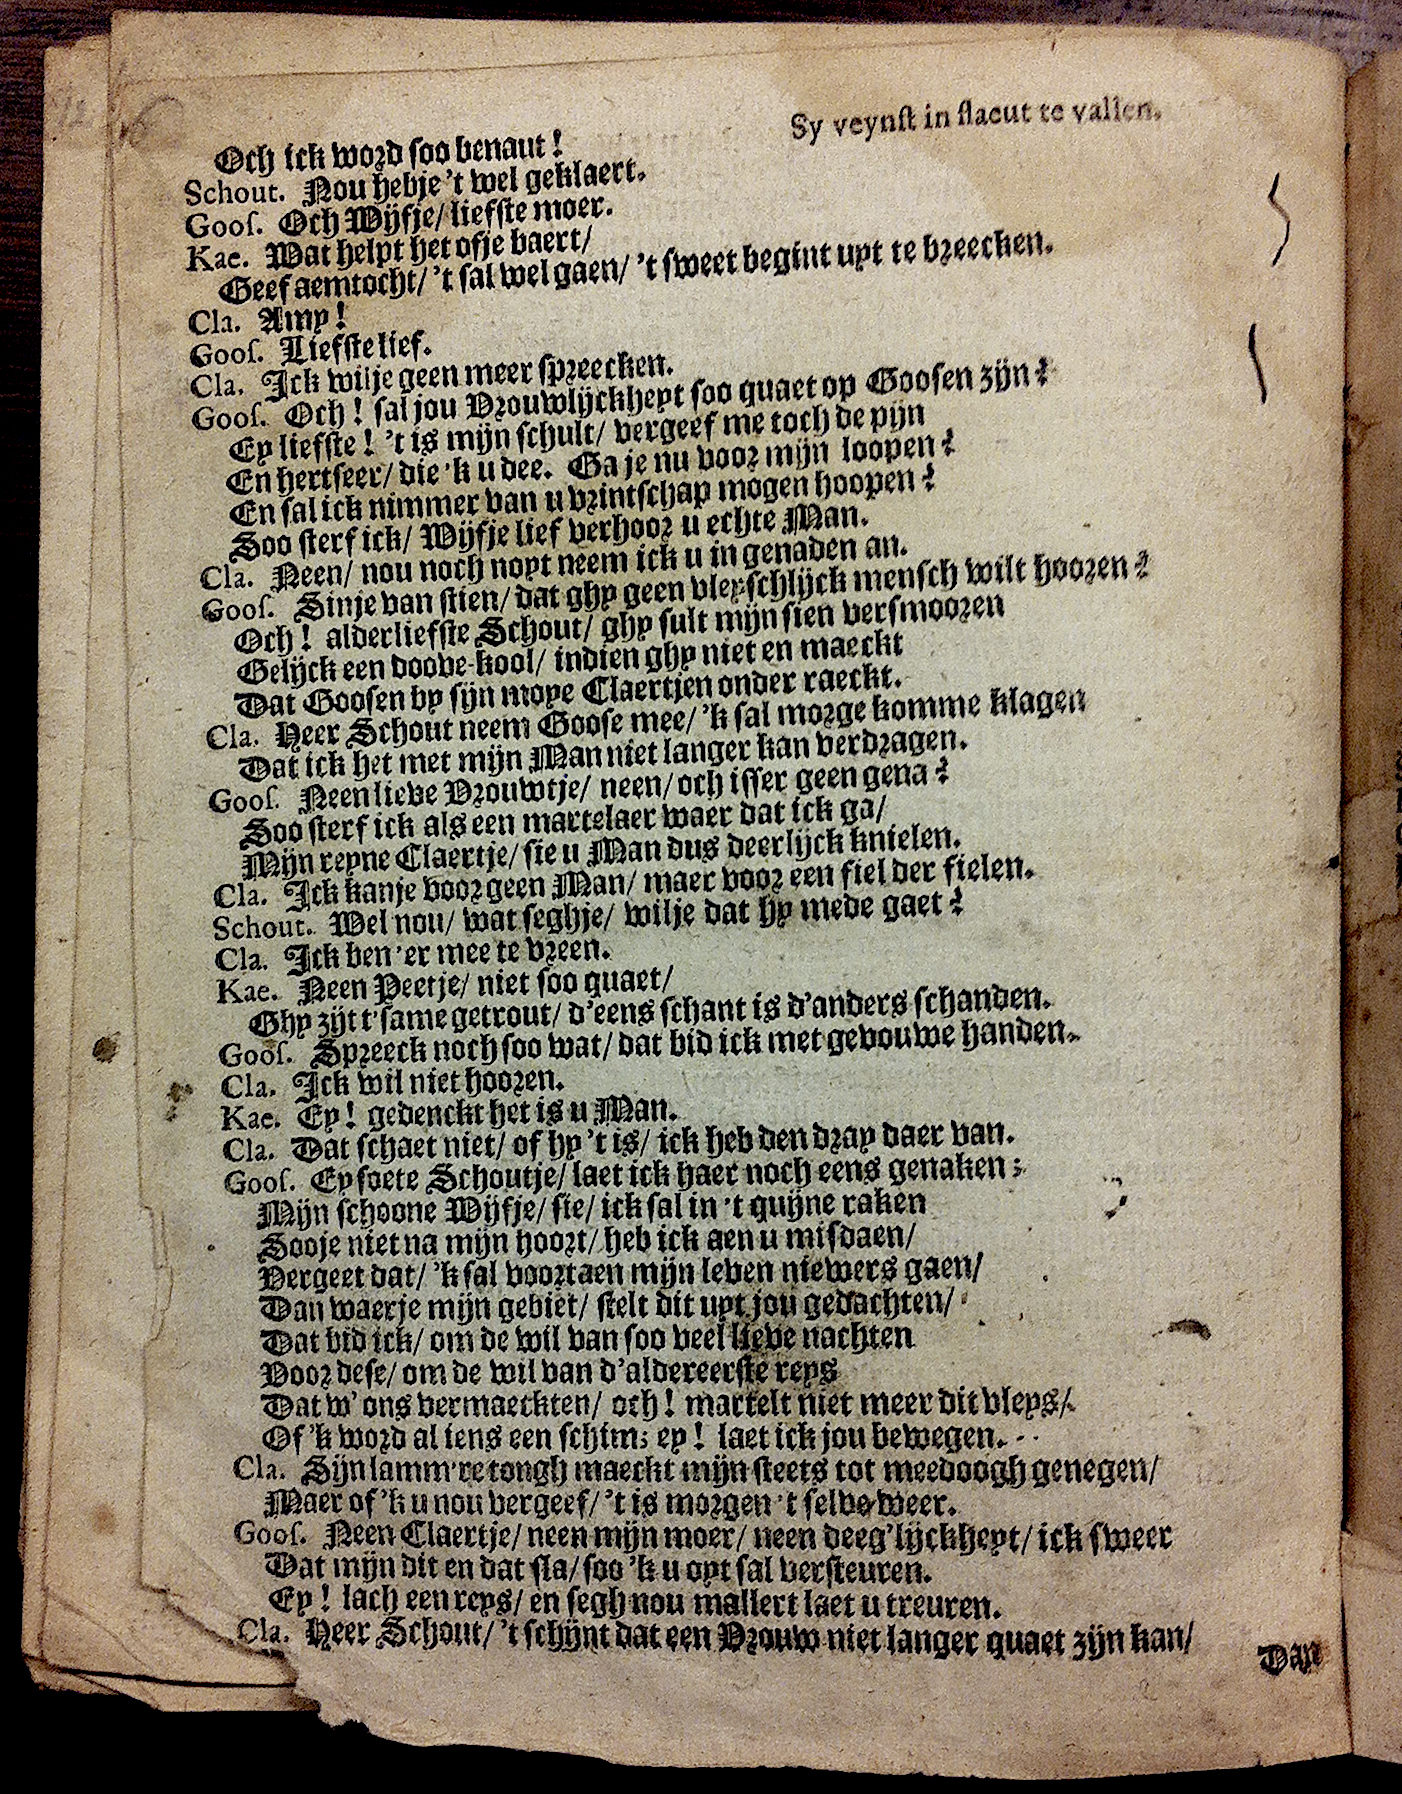 Sy veynſt in flaeut te vallen.
Och ick word ſoo benaut!
Schout. Nou hebje 't wel geklaert.
Gooſ. Och Wijfje/ liefſte moer.
Kae. Wat helpt het ofje baert/
Geef aemtocht/ 't ſal wel gaen/ 't ſweet begint uyt te breecken.
Cla. Amy!
Gooſ. Liefſte lief.
Cla. Ick wilje geen meer ſpreecken.
Gooſ. Och! ſal jou Vrouwlijckheyt ſoo quaet op Gooſen zijn?
Ey liefſte! 't is mijn ſchult/ vergeef me toch de pijn
En hertſeer/ die 'k u dee. Ga je nu voor mijn loopen?
En ſal ick nimmer van u vrintſchap mogen hoopen?
Soo ſterf ick/ Wijfje lief verhoor u echte Man.
Cla. Neen/ nou noch noyt neem ick u in genaden an.
Gooſ. Sinje van ſtien/ dat ghy geen vleyſchlijck menſch wilt hooren?
Och! alderliefſte Schout/ ghy ſult mijn ſien verſmooren
Gelijck een doove-kool/ indien ghy niet en maeckt
Dat Gooſen by ſijn moye Claertjen onder raeckt.
Cla. Heer Schout neem Gooſe mee/ 'k ſal morge komme klagen
Dat ick het met mijn Man niet langer kan verdragen.
Gooſ. Neen lieve Vrouwtje/ neen/ och iſſer geen gena?
Soo ſterf ick als een martelaer waer dat ick ga/
Mijn reyne Claertje/ ſie u Man dus deerlijck knielen.
Cla. Ick kanje voor geen Man/ maer voor een fiel der fielen.
Schout. Wel nou/ wat ſeghje/ wilje dat hy mede gaet?
Cla. Ick ben 'er mee te vreen.
Kae. Neen Peetje/ niet ſoo quaet/
Ghy zijt t'ſame getrout/ d'eens ſchant is d'anders ſchanden.
Gooſ. Spreeck noch ſoo wat/ dat bid ick met gevouwe handen.
Cla. Ick wil niet hooren.
Kae. Ey! gedenckt het is u Man.
Cla. Dat ſchaet niet/ of hy 't is/ ick heb den dray daer van.
Gooſ. Ey ſoete Schoutje/ laet ick haer noch eens genaken;
Mijn ſchoone Wijfje/ ſie/ ick ſal in 't quijne raken
Sooje niet na mijn hoort/ heb ick aen u miſdaen/
Vergeet dat/ 'k ſal voortaen mijn leven niewers gaen/
Dan waerje mijn gebiet/ ſtelt dit uyt jou gedachten/
Dat bid ick/ om de wil van ſoo veel lieve nachten
Voor deſe/ om de wil van d'aldereerſte reys
Dat w' ons vermaeckten/ och! martelt niet meer dit vleys/
Of 'k word al iens een ſchim; ey! laet ick jou bewegen.
Cla. Sijn lamm're tongh maeckt mijn ſteets tot meedoogh genegen/
Maer of 'k u nou vergeef/ 't is morgen 't ſelve weer.
Gooſ. Neen Claertje/ neen mijn moer/ neen deeg'lijckheyt/ ick ſweer
Dat mijn dit en dat ſla/ ſoo 'k u oyt ſal verſteuren.
Ey! lach een reys/ en ſegh nou mallert laet u treuren.
Cla. Heer Schout/ 't ſchijnt dat een Vrouw niet langer quaet zijn kan/
Dan